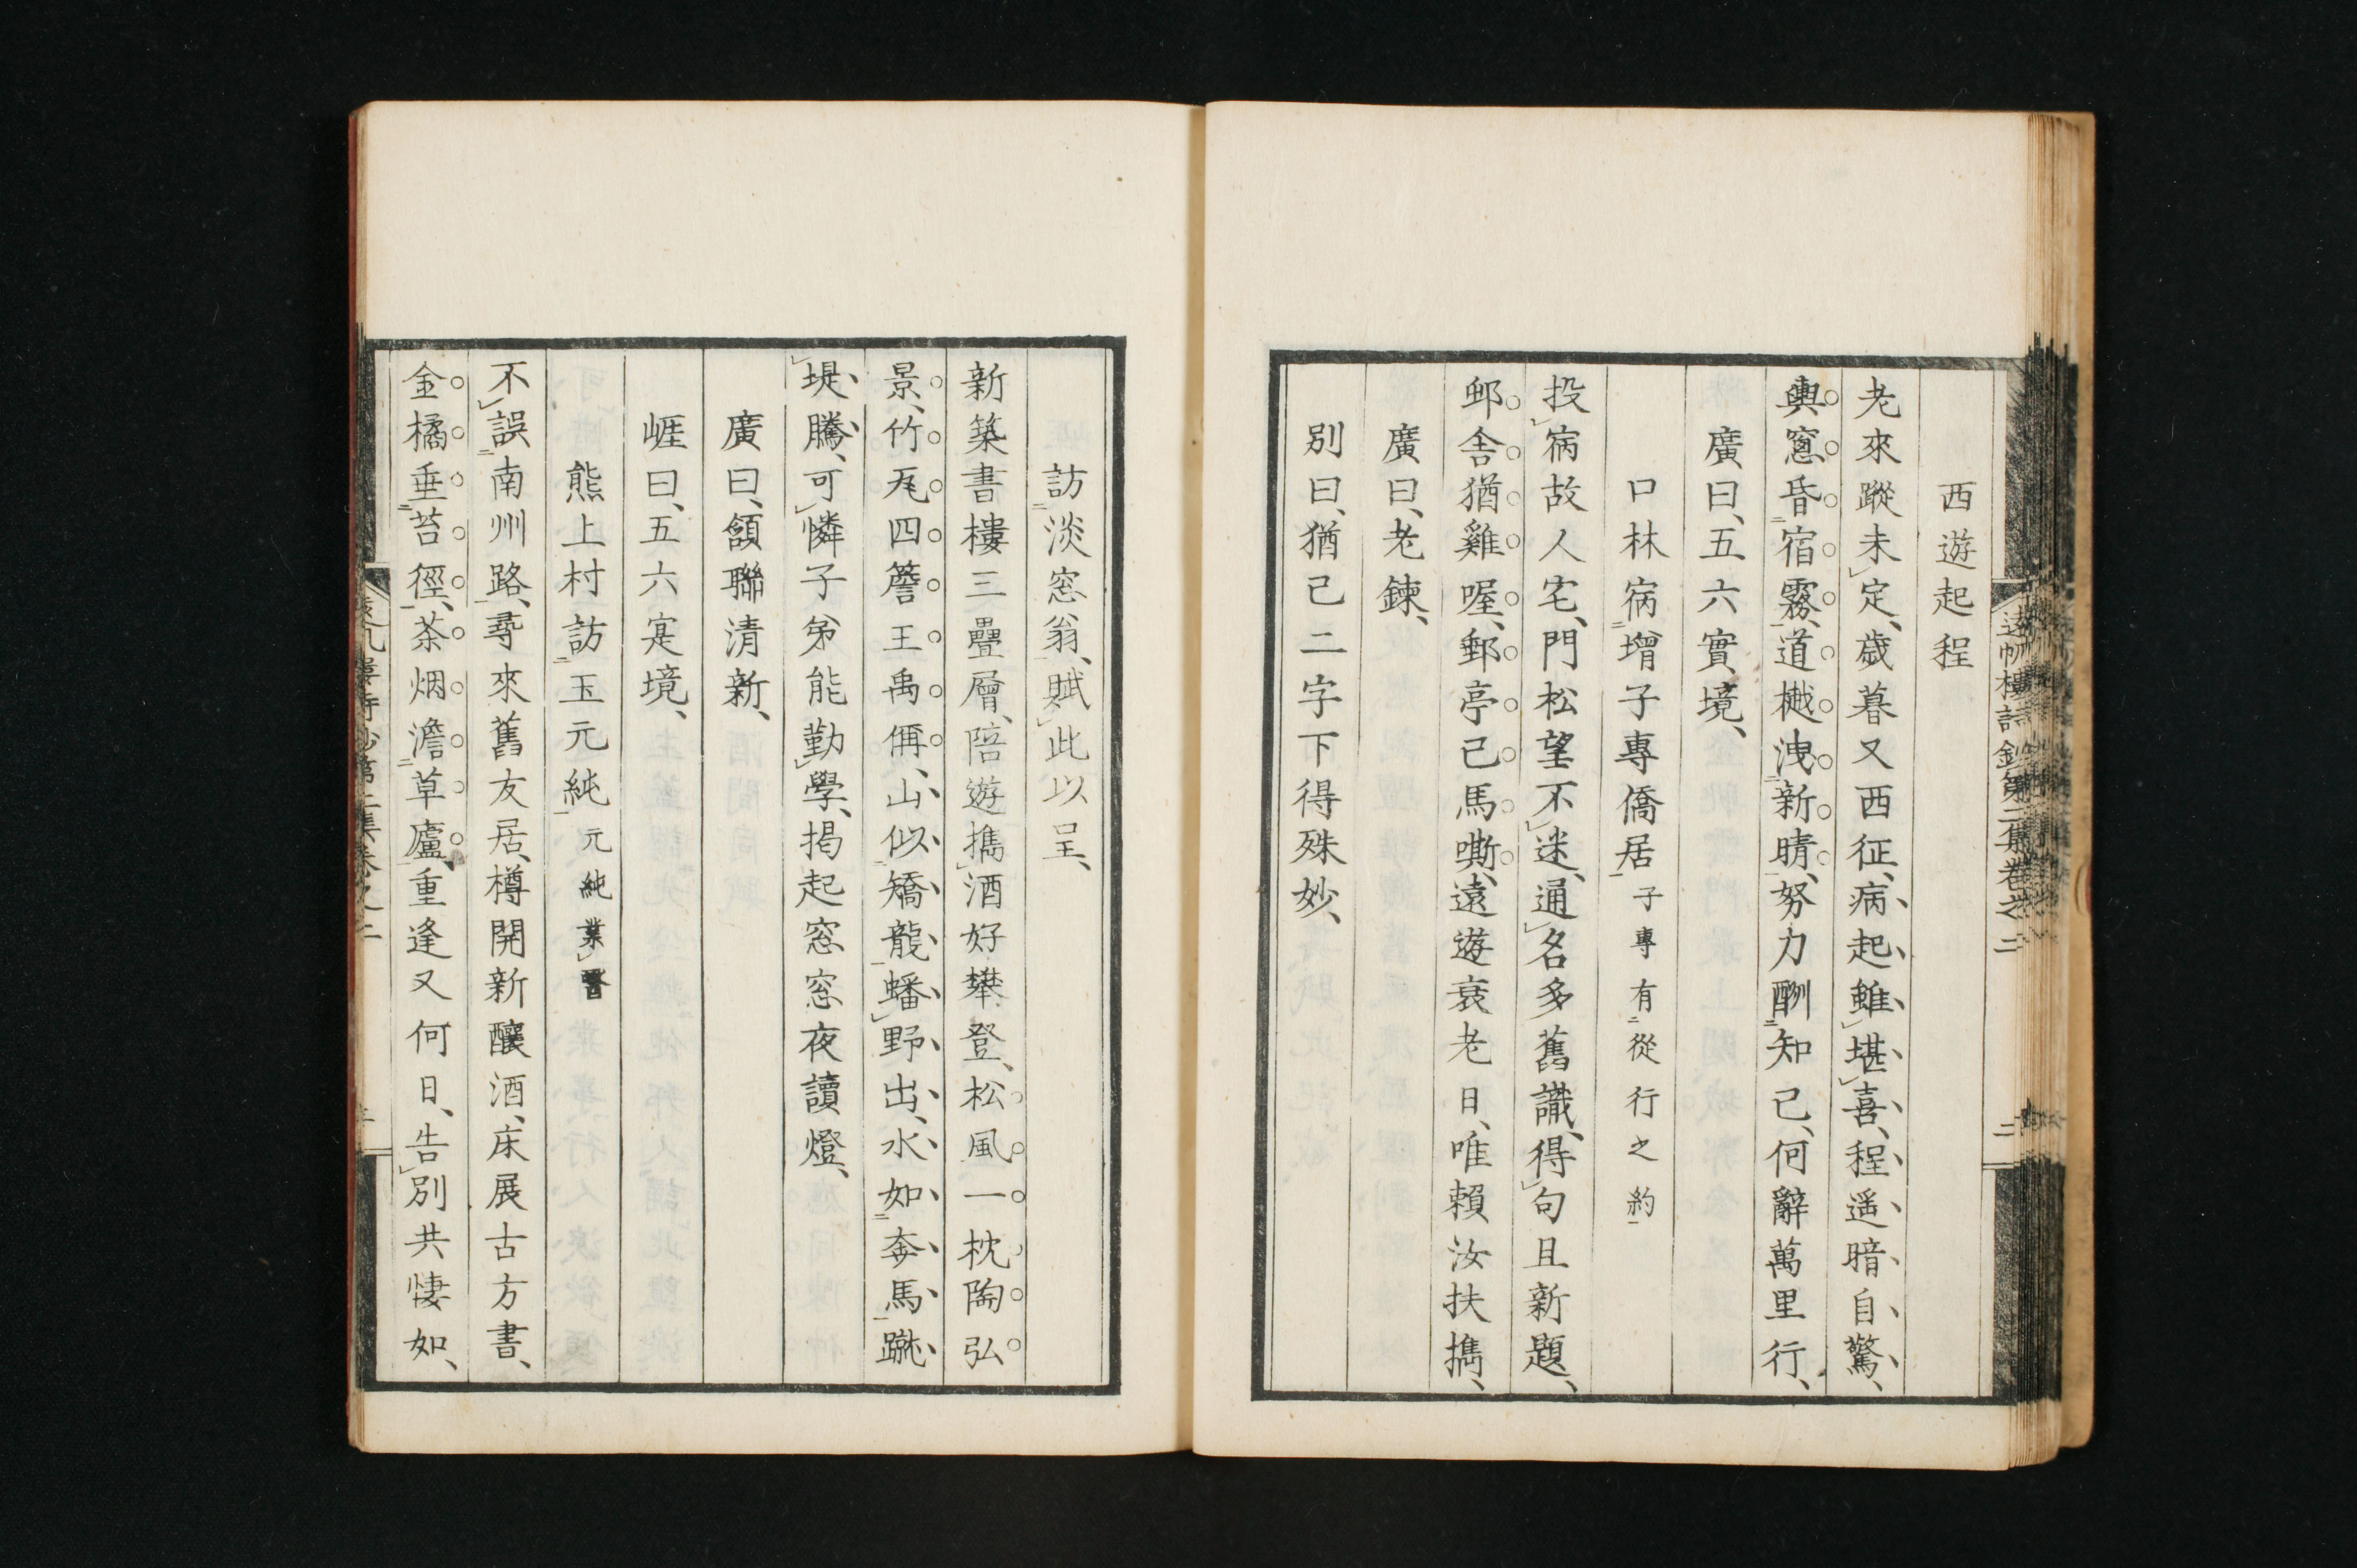 西遊起程
老來蹤未定、歳暮又西征、病起雖堪喜、程遥暗自驚、
輿窓昏宿霧、道樾洩新晴、努力酬知己、何辭萬里行、
廣曰、五六實境、
口林病增子專僑居子專有從行之約
投病故人宅、門松望不迷、通名多舊識、得句且新題、
邮舎猶雞喔、郵亭己馬嘶、遠遊衰老日、唯賴汝扶携、
廣曰、老鍊、
別曰、猶己二字下得殊妙、
訪淡窓翁、賦此以呈、
新築書樓三疊層、陪遊携酒好攀登、松風一枕陶弘
景、竹瓦四簷王禹偁、山似矯龍蟠野出、水如奔馬蹴
堤騰、可憐子弟能勤學、掲起窓窓夜讀燈、
廣曰、頷聯清新、
崕曰、五六寔境、
熊上村訪玉元純元純業醫
不誤南州路、尋來舊友居、樽開新釀酒、床展古方書、
金橘垂苔徑、茶烟澹草廬、重逢又何日、告別共悽如、
遠帆樓詩鈔第二集卷之二 二